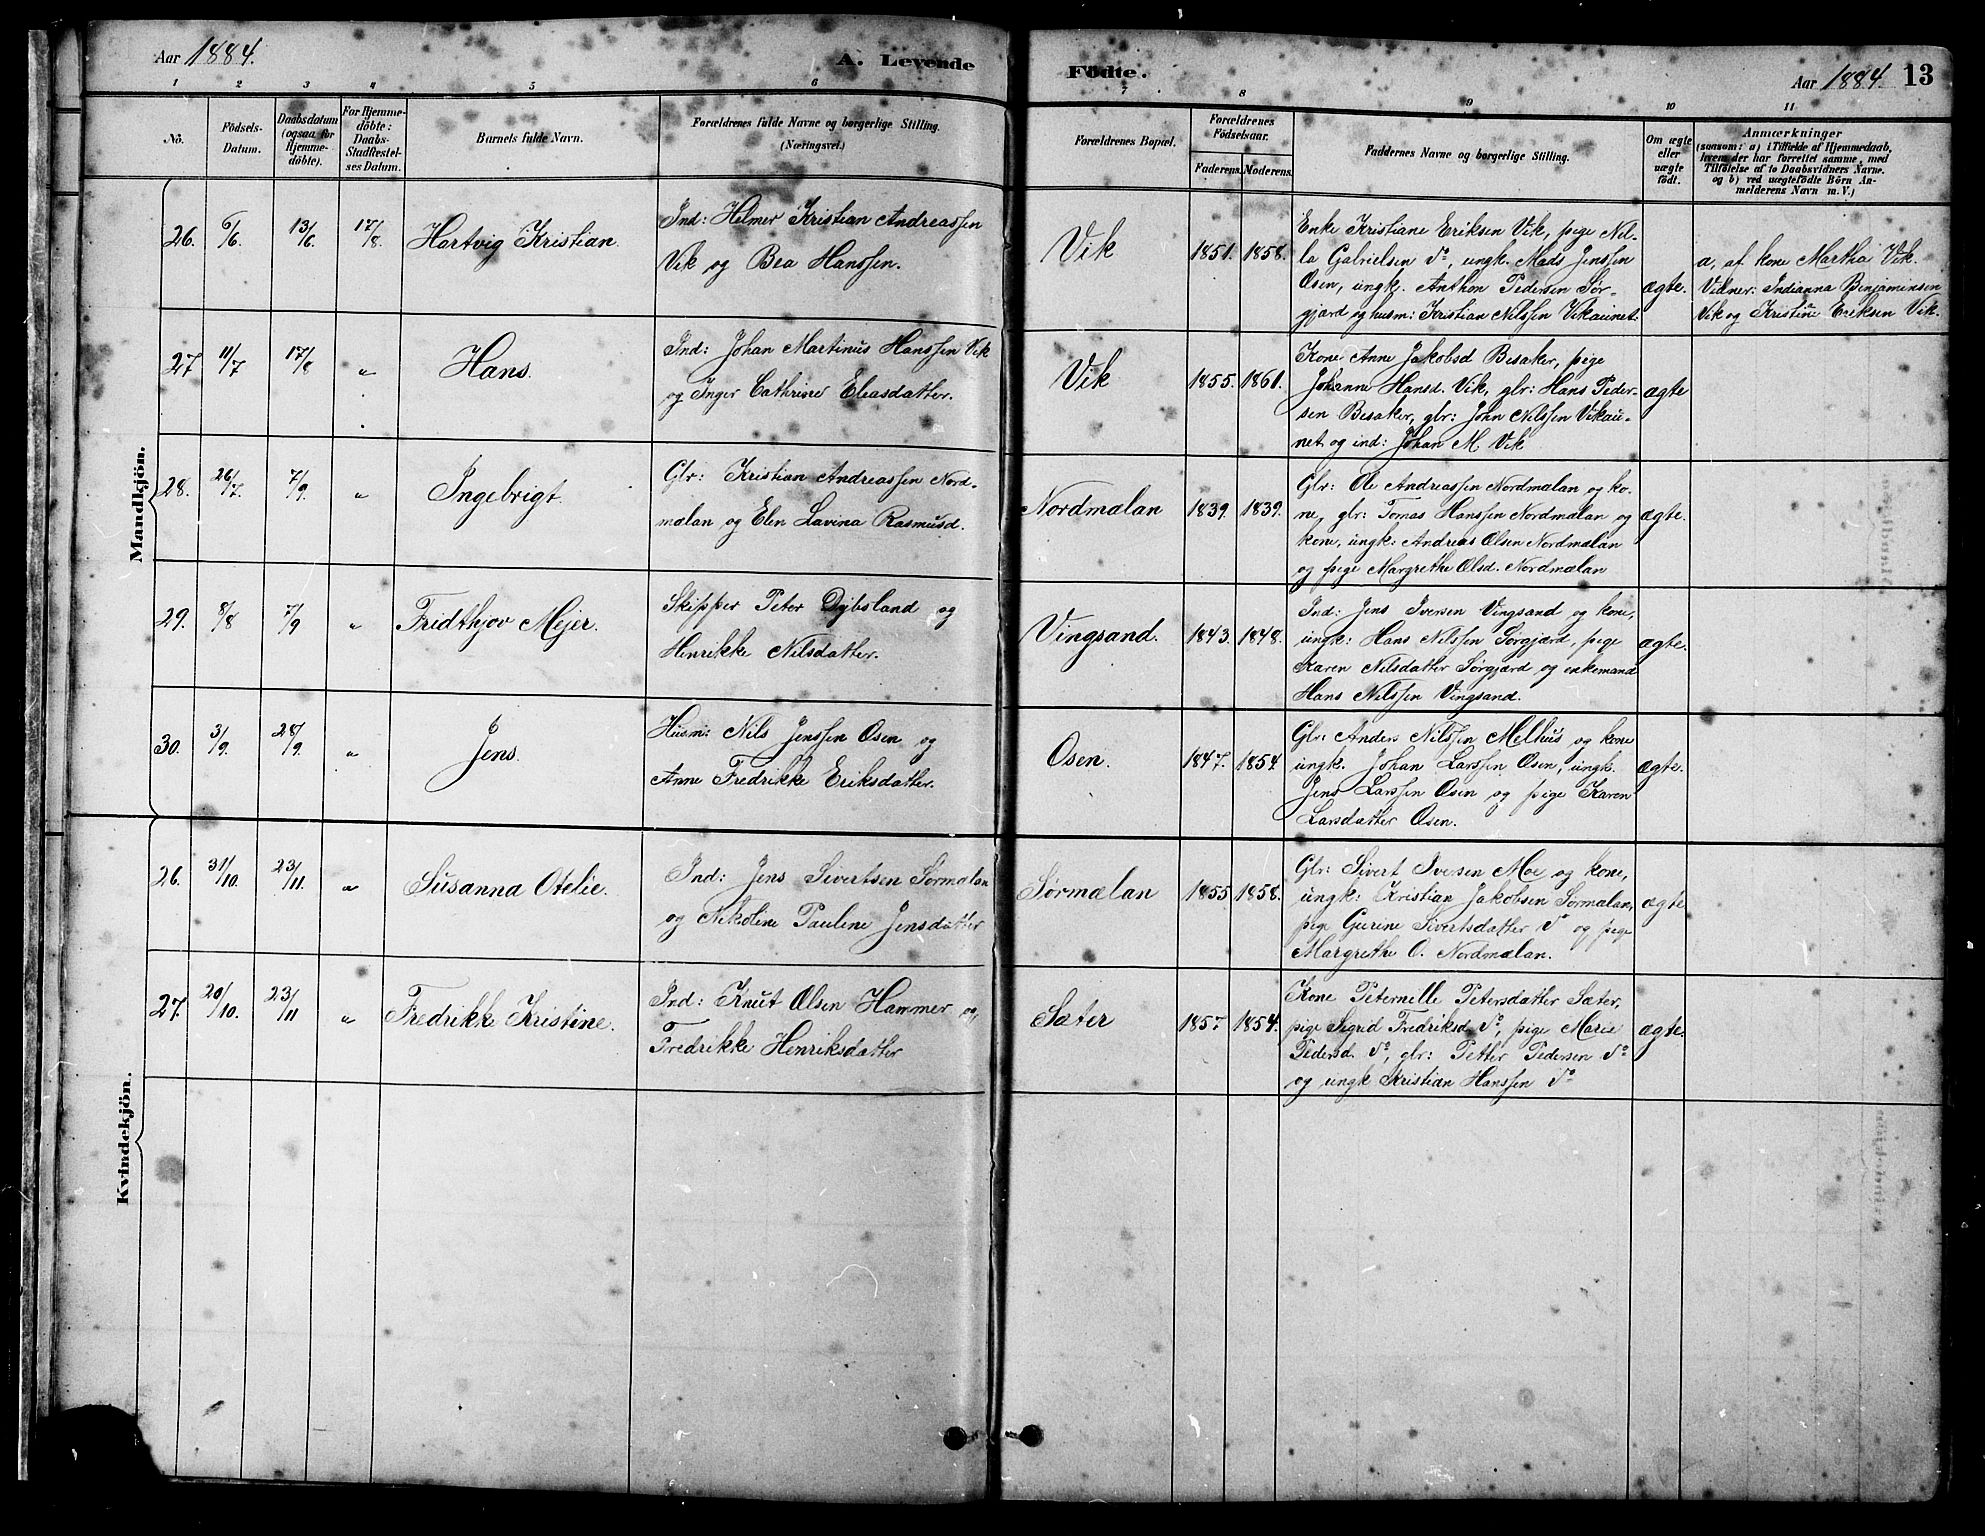 Aar 1884.
A. Levende
Födte.
Aar 1884. 13
1 2 3 4 5 6 7 8 9 10 11
No.
Födsels-
Datum.
Daabsdatum
(ogsaa for
Hjemme-
döbte).
For Hjemme-
döbte:
Daabs-
Stadfæstel-
ses Datum.
Barnets fulde Navn.
Forældrenes fulde Navne og borgerlige Stilling.
(Næringsvei.)
Forældrenes Bopæl.
Forældrenes
Födselsaar.
Faderens. Moderens.
Faddernes Navne og borgerlige Stilling.
Om ægte
eller
uægte
født.
Anmærkninger
(saasom: a) i Tilfælde af Hjemmedaab,
hvem der har forrettet samme, med
Tilföielse af to Daabsvidners Navne.
og b) ved uægtefödte Börn An-
melderens Navn m. V.)
Mandkjön.
26. 6/6. 13/6. 17/8. Hartvig Kristian.
Ind: Helmer Kristian Andreassen
Vik og Bea Hanssen.
Vik 1851. 1858.
Enke Kristiane Eriksen Vik, pige Nil-
la Gabrielsen do, ungk. Mads Jenssen
Osen, ungk. Anthon Pedersen Sør-
gjærd og husm: Kristian Nilssen Vikaunet.
ægte.
a, af kone Martha Vik.
Vidner: Indianna Benjaminsen
Vik og Kristine Eriksen Vik.
27 11/7 17/8 „ Hans.
Ind: Johan Martinus Hanssen Vik
og Inger Cathrine Eleasdatter.
Vik 1855. 1861.
Kone Anne Jakobsd Besaker, pige
Johanne Hansd. Vik, glr: Hans Peder-
sen Besaker, glr: John Nilssen Vikau-
net og ind: Johan M Vik
ægte
28. 26/7. 7/9. „ Ingebrigt.
Glr: Kristian Andreassen Nord-
mælan og Elen Lavina Rasmusd.
Nordmælan 1839. 1839.
Glr: Ole Andreassen Nordmælan og ko-
ne, glr: Tomas Hanssen Nordmælan og
kone, ungk: Andreas Olsen Nordmælan
og pige Margrethe Olsd. Nordmælan
ægte.
29. 8/8 7/9 „ Fridthjov Mejer.
Skipper Peter Dybsland og
Henrikke Nilsdatter.
Vingsand. 1843. 1848.
Ind: Jens Iversen Vingsand og kone,
ungk: Hans Nilssen Sørgjærd, pige
Karen Nilsdatter Sørgjærd og enkemand
Hans Nilssen Vingsand.
ægte.
30. 3/9. 28/9. „ Jens.
Husm: Nils Jenssen Osen og
Anne Fredrikke Eriksdatter.
Osen. 1847. 1854
Glr: Anders Nilssen Melhus og kone
ungk. Johan Larssen Osen, ungk.
Jens Larssen Osen og pige Karen
Larsdatter Osen.
ægte.
Kvindekjön.
26. 31/10. 23/11. „ Susanna Otelie.
Ind: Jens Sivertsen Sørmælan
og Nikoline Pauline Jensdatter
Sørmælan 1855 1858.
Glr: Sivert Iversen Moe og kone,
ungk: Kristian Jakobsen Sørmælan,
pige Gurine Sivertsdatter do og pige
Margrethe O. Nordmælan.
ægte
27. 20/10. 23/11 „ Fredrikke Kristine.
Ind: Knut Olsen Hammer og
Fredrikke Henriksdatter
Sæter 1857. 1854.
Kone Peternille Petersdatter Sæter,
pige Sigrid Fredriksd do, pige Marie
Pedersd. do, glr: Petter Pedersen do
og ungk Kristian Hanssen do
ægte.